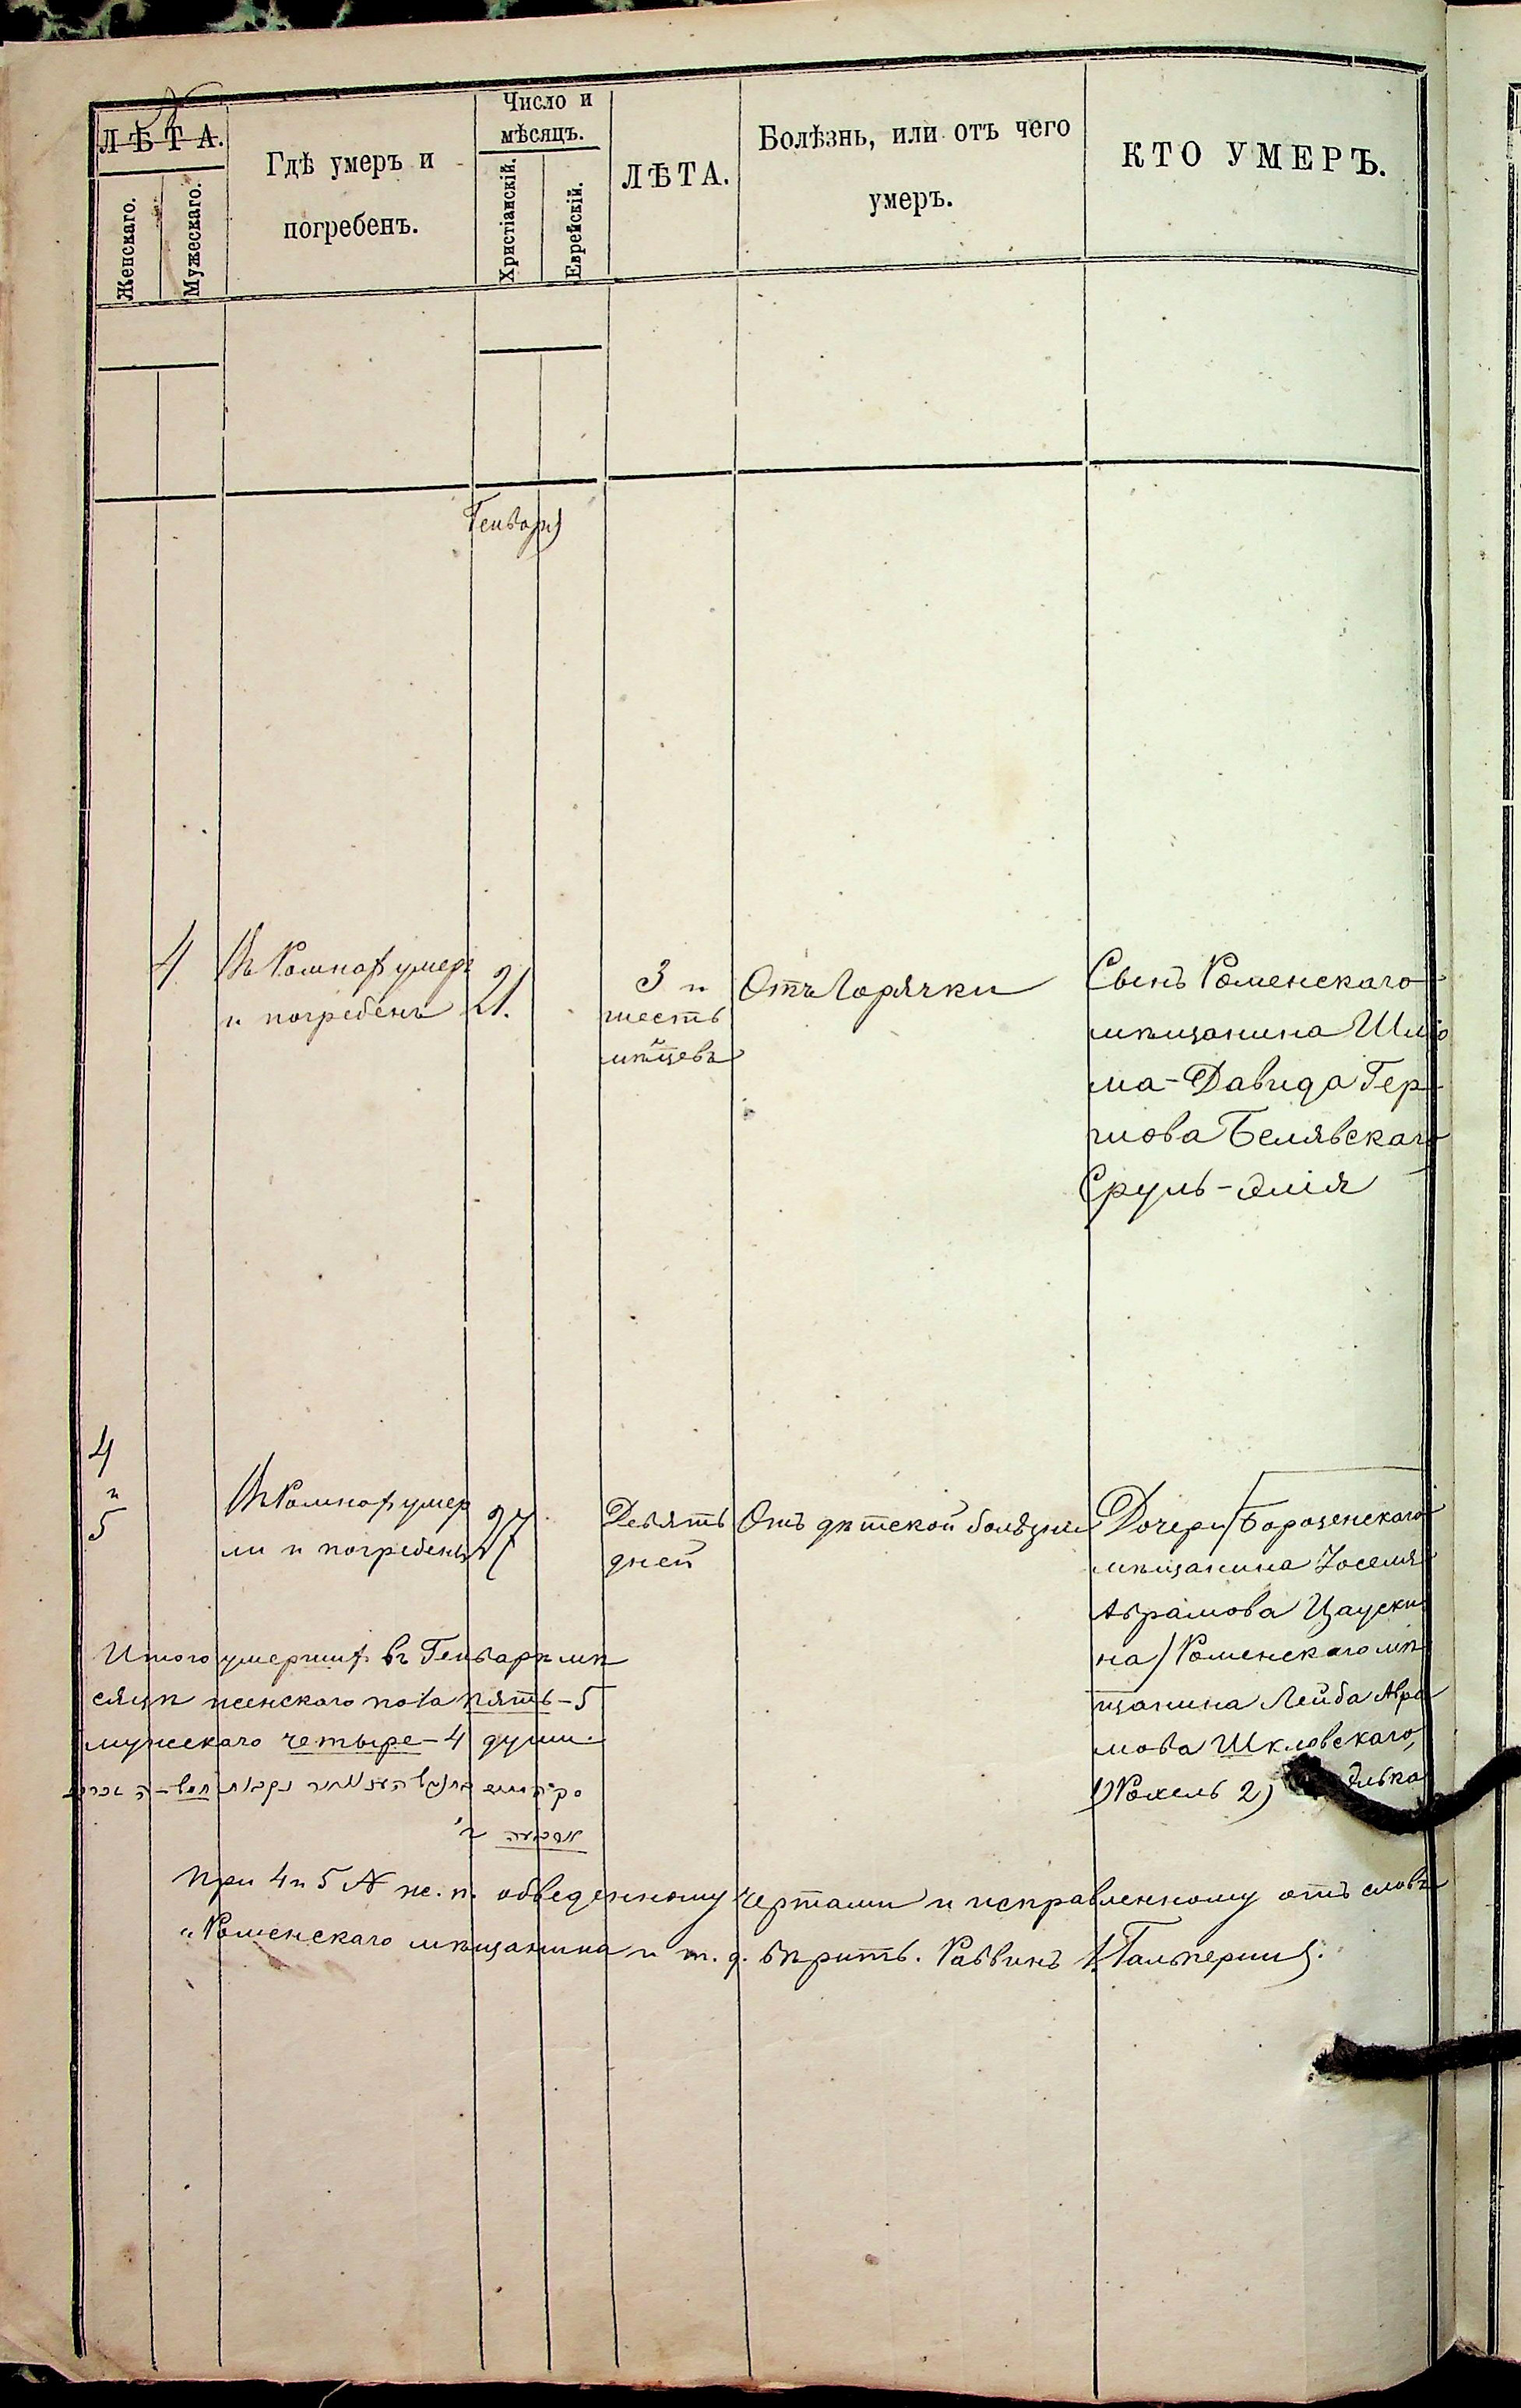 №
ЛѢТА.
Женскаго.
Мужескаго.
Гдѣ умеръ и
погребенъ.
Число и
мѣсяцъ.
Христіанскій.
Еврейскій.
ЛѢТА.
Болѣзнь, или отъ чего
умеръ.
КТО УМЕРЪ.
Генваря
4
Въ Ромнах умеръ
и погребенъ
21.
3 и
шесть
мѣцевъ
Отъ Горячки
Сынъ Роменскаго
мѣщанина Шлио
ма-Давида Гер-
шова Белявскаго
Сруль-Элія
4
и
5
Въ Ромнах умер
ли и погребены
27
Девять
дней
Отъ дѣтской болѣзни
Дочери/Борзенскаго
мѣщанина Іоселя
Абрамова Цауски
на/Роменскаго мѣ
щанина Лейба Авра
мова Шкловскаго,
1) Рохель 2) элька
Итого умерших въ Генварѣ мѣ
сяцѣ женскаго пола пять-5
мужскаго четыре-4 души.
При 4 и 5 № ж. п. обведенному чертами и исправленному отъ словъ
"Роменскаго мѣщанина и т. д. вѣрить. Раввинъ Гальперинъ.